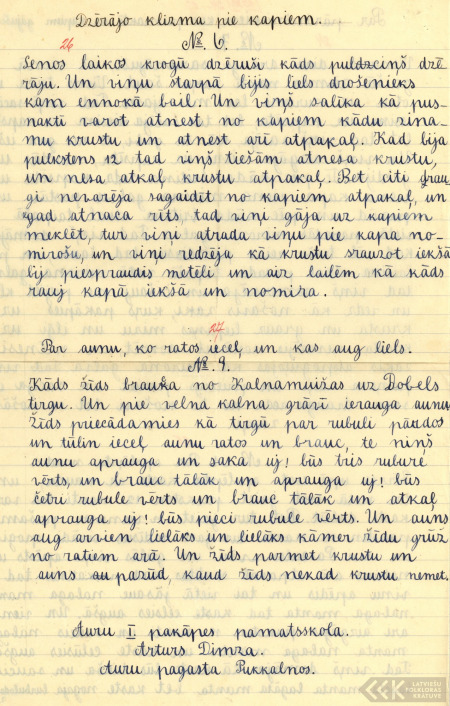 Dzērājo klizma pie kapiem.
26
№ 6.
Senos laikos krogū dzēruši kāds puldzciņš dzē
rāju. Un viņu starpā bijis liels drošenieks
kam ennokā bail. Un viņš salīka kā pus-
naktī varot atnest no kapiem kādu zina-
mu krustu un atnest arī atpakaļ. Kad bija
pulkstens 12 tad viņš tiešām atnesa krustu,
un nesa atkaļ krustu atpakaļ. Bet citi drau-
gi nevarēja sagaidīt no kapiem atpakaļ, un
gad atnaca rīts, tad viņi gāja uz kapiem
meklēt, tur viņi atrada viņu pie kapa no-
mirošu, un viņi redzēja kā krustu srauzot iekšā
bij piespraudis mētēli un aiz bailēm kā kāds
rauj kapā iekšā un nomira.
27
Par aunu, ko ratos iecēļ un kas aug liels.
№ 9.
Kāds žīds brauka no Kalnamuižas uz Dobels
tirgu. Un pie velna kalna grāvī ierauga aunu
Žīds priecādamies kā tirgū par rubuli pārdos
un tūlin iecēļ aunu ratos un brauc, te viņš
aunu aprauga un saka uj! būs trīs ruburē
vērts, un brauc tālāk un aprauga uj! būs
četri rubule vērts un brauc tālāk un atkaļ
aprauga uj! būs pieci rubule vērts. Un auns
aug arvien lielāks un lielāks kāmēr žīdu grūž
no ratiem arā. Un žīds parmet krustu un
auns au pazūd, kaud žīds nekad krustu nemet.
Auru I. pakāpes pamatsskola.
Arturs Dimza.
Auru pagasta Pikkalnos.
LATVIEŠU
FOLKLORAS
KRĀTUVE